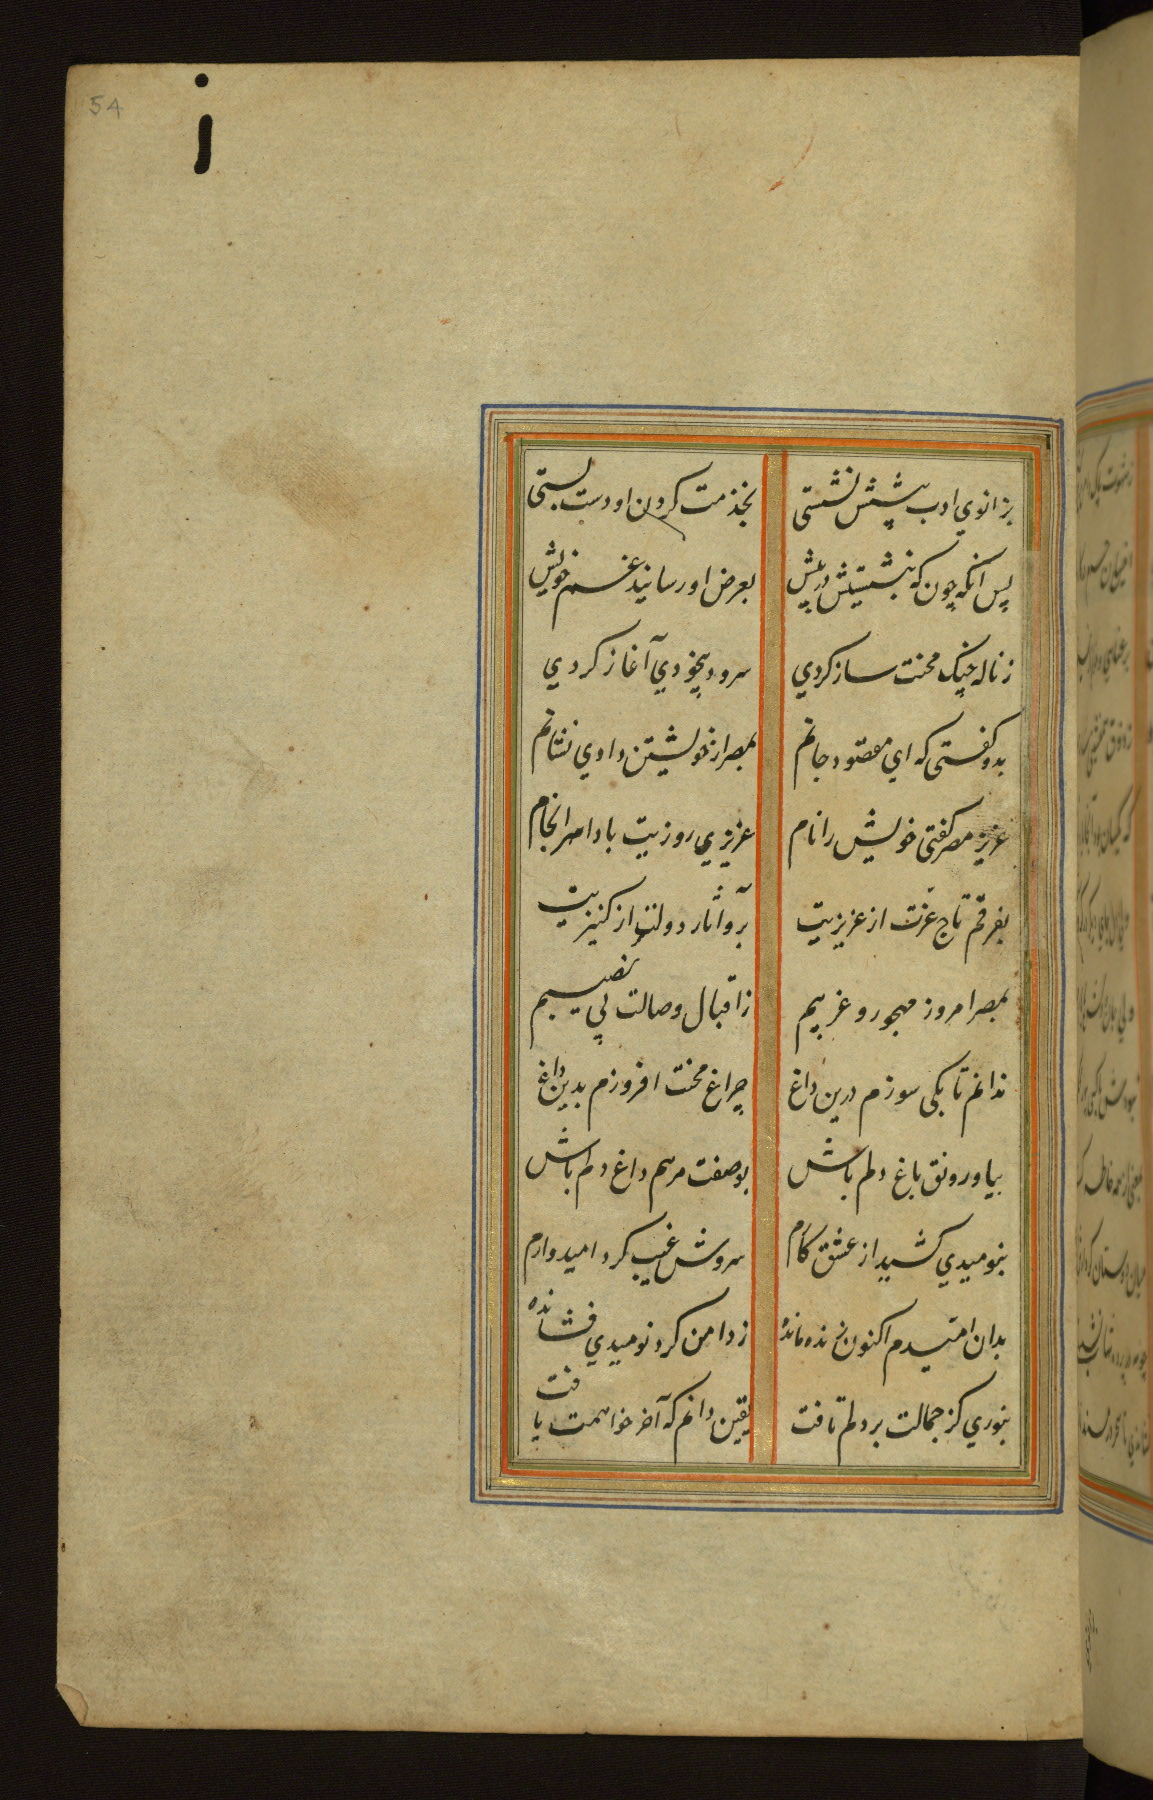 54
بزانوي ادب پیشش نشستی بخذمت کردن او دست بستی
پس انکه چون که بنشستیش در پیش بعرض او رسانید غم خویش
ز ناله چنک محنت ساز کردي سرود بیخودي آغاز کردي
بدو کفستی که اي مقصود جانم بمصر از خویشتن دادي نشانم
عزیز مصر کفتی خویش را نام عزیزي روزیت بادا سرانجام
بفرقم تاج عزت از عزیزیت برو آثار دولت از کنیزیت
بمصر امروز مهجور و غریبم ز اقبال وصالت بی نصیبم
ندانم تا بکی سوزم درین داغ چراغ محنت افروزم بدین داغ
بیا و رونق باغ دلم باش بوصفت مرهم داغ دلم باش
بنومیدي کشید از عشق کام سروش غیب کرد امیدوارم
بدان امیدم اکنون زنده مانده ز دامن کرد نومیدي فشانده
بنوري کز جمالت بر دلم تافت یقین دانم که آخر خواهمت یافت